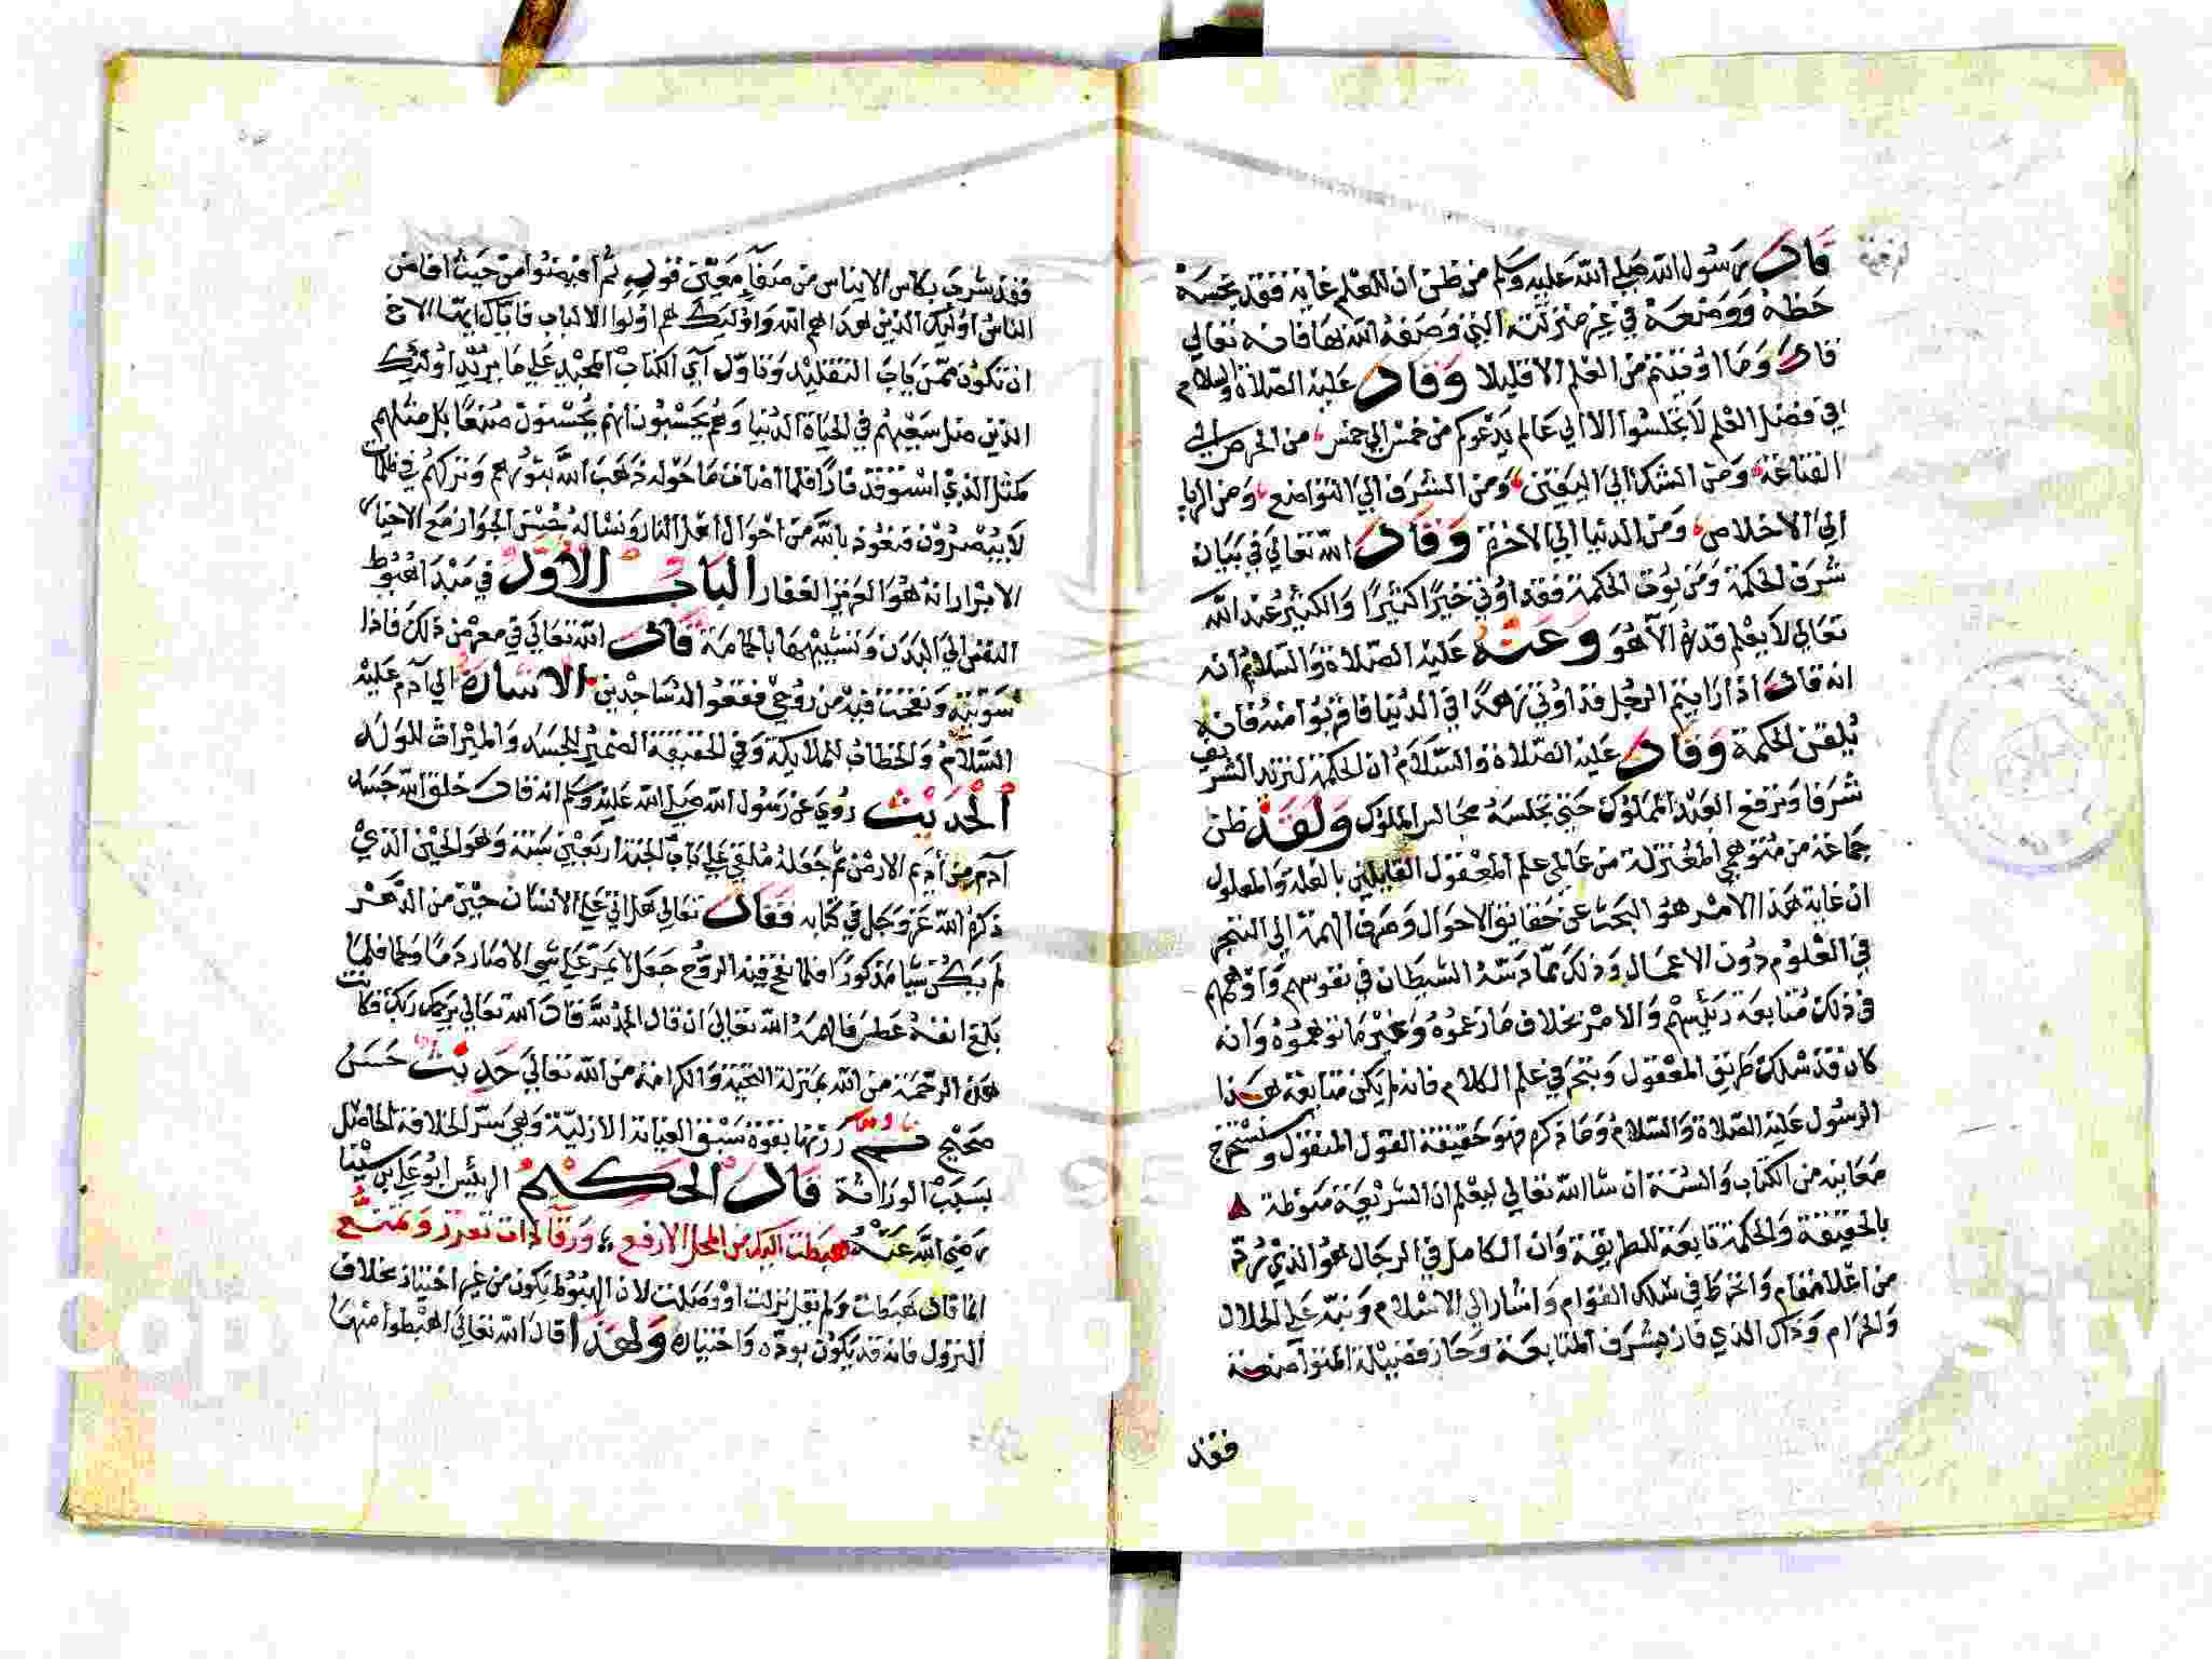 قال رسول الله صلي الله عليه وسلم من ظن ان للعلم غاية فقد بخسه
حظه ووضعه في غير منزلته التي وصفه الله بها فانه تعالي
قال وما اوتيتم من العلم الا قليلا وقال عليه الصلاة والسلام
في فضل العلم لا تجلسوا الا الي عالم يدعوكم من خمس الي خمس من الحرص الي
القناعة ومن الشك الي اليقين ومن الشرف الي التواضع ومن الريا
الي الاخلاص ومن الدنيا الي الاخرة وقال الله تعالي في بيان
شرف الحكمة ومن يوت الحكمة فقد اوتي خيرا كثيرا والكثير عند الله
تعالي لا يعلم قدره الا هو وعنه عليه الصلاة والسلام انه
انه قال اذا رايتم الرجل قد اوتي زهدا في الدنيا فاقربوا منه فانه
يلقن الحكمة وقال عليه الصلاة والسلام ان الحكمة لتزيد الشريف
شرفا وترفع العبد المملوك حتي تجلسه مجالس الملوك ولقد ظن
جماعة من متوهمي المعتزلة من عالمي علم المعقول القايلين بالعلة والمعلول
ان غاية هذا الامر هو البحث عن حقايق الاحوال وصرف الهمة الي التبحر
في العلوم دون الاعمال وذلك مما دسه الشيطان في نفوسهم واوهمهم
في ذلك متابعة رئيسهم والامر بخلاف ما زعموه وغير ما توهموه وانه
كان قد سلك طريق المعقول وتبحر في علم الكلام فانه لم يكن متابعة هذا
الرسول عليه الصلاة والسلام وما ذكره فهو حقيقة القول المنقول وسنخرج
معانيه من الكتاب والسنة ان شا الله تعالي ليعلم ان الشريعة منوطة
بالحقيقة والحكمة تابعة للطريقة وان الكامل في الرجال هو الذي
من اعلا مقام وانخرط في سلك القوام واشار الي الاسلام ونبه علي الحلال
والحرام وذاك الذي فاز بشرف المتابعة وحاز فضيلة
فقد
فقد شرب بكاس الايناس من معني قوله ثم افيضوا من حيث افاض
الناس اوليك الذين هداهم الله واوليك هم اولوا الالباب فاياك ايها الاخ
ان تكون ممن ياب التقليد وتاول آي الكتاب المجيد علي ما يريد اوليك
الذين ضل سعيهم في الحياة الدنيا وهم يحسبون انهم يحسنون صنعا بل مثلهم
كمثل الذي استوقد نارا فلما اضات ما حوله ذهب الله بنورهم وتركهم في ظلمات
لا يبصرون فنعوذ بالله من احوال اهل النار ونساله حسن الجوار مع الاخيار
الابرار انه هو العزيز الغفار الباب الاول في مبدا هبوط
النفس الي البدن وتشبيهها بالحمامة قال الله تعالي في معرض ذلك فاذا
سويته ونفخت فيه من روحي فقعوا له ساجدين الاشارة الي آدم عليه
السلام والخطاب للملايكة وفي الحقيقة الضمير للجسد والميراث للولد
الحديث روي عن رسول الله صلي الله عليه وسلم انه قال خلق الله جسد
آدم من أديم الارض ثم جعله ملقي علي باب الجنة اربعين سنة وهو الحين الذي
ذكره الله عز وجل في كتابه فقال تعالي هل اتي علي الانسان حين من الدهر
لم يكن شيا مذكورا فلما نفخ فيه الروح جعل لا يمر علي شي الا صار دما ولحما فلما
بلغ انفه عطس فالهمه الله تعالي ان قال الحمد لله فقال الله تعالي يرحمك ربك فكانت
هذه الرحمة من الله بمنزلة التحية والكرامة من الله تعالي حديث حسن
صحيح بقوة سبق العناية الازلية وهي سر الخلافة الحاصل
بسبب الوراثة قال الحكيم الرئيس ابو علي بن سينا
رضي الله عنه هبطت اليك من المحل الارفع ورقآ ذات تعزز وتمنع
انما قال هبطت ولم يقل نزلت او وصلت لان الهبوط يكون من غير اختيار بخلاف
النزول فانه قد يكون بوده واختياره ولهذا قال الله تعالي اهبطوا منها